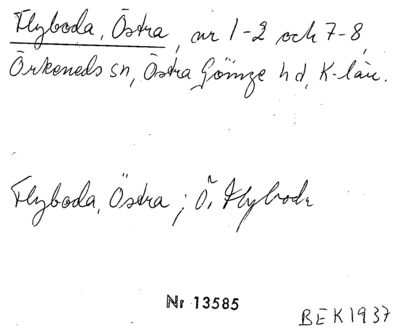 Flyboda, Östra, nr 1-2 och 7-8,
Örkeneds sn, Östra Göinge hd, K-län.
Flyboda, Östra; Ö. Flyboda
Nr 13585
BEK 1937